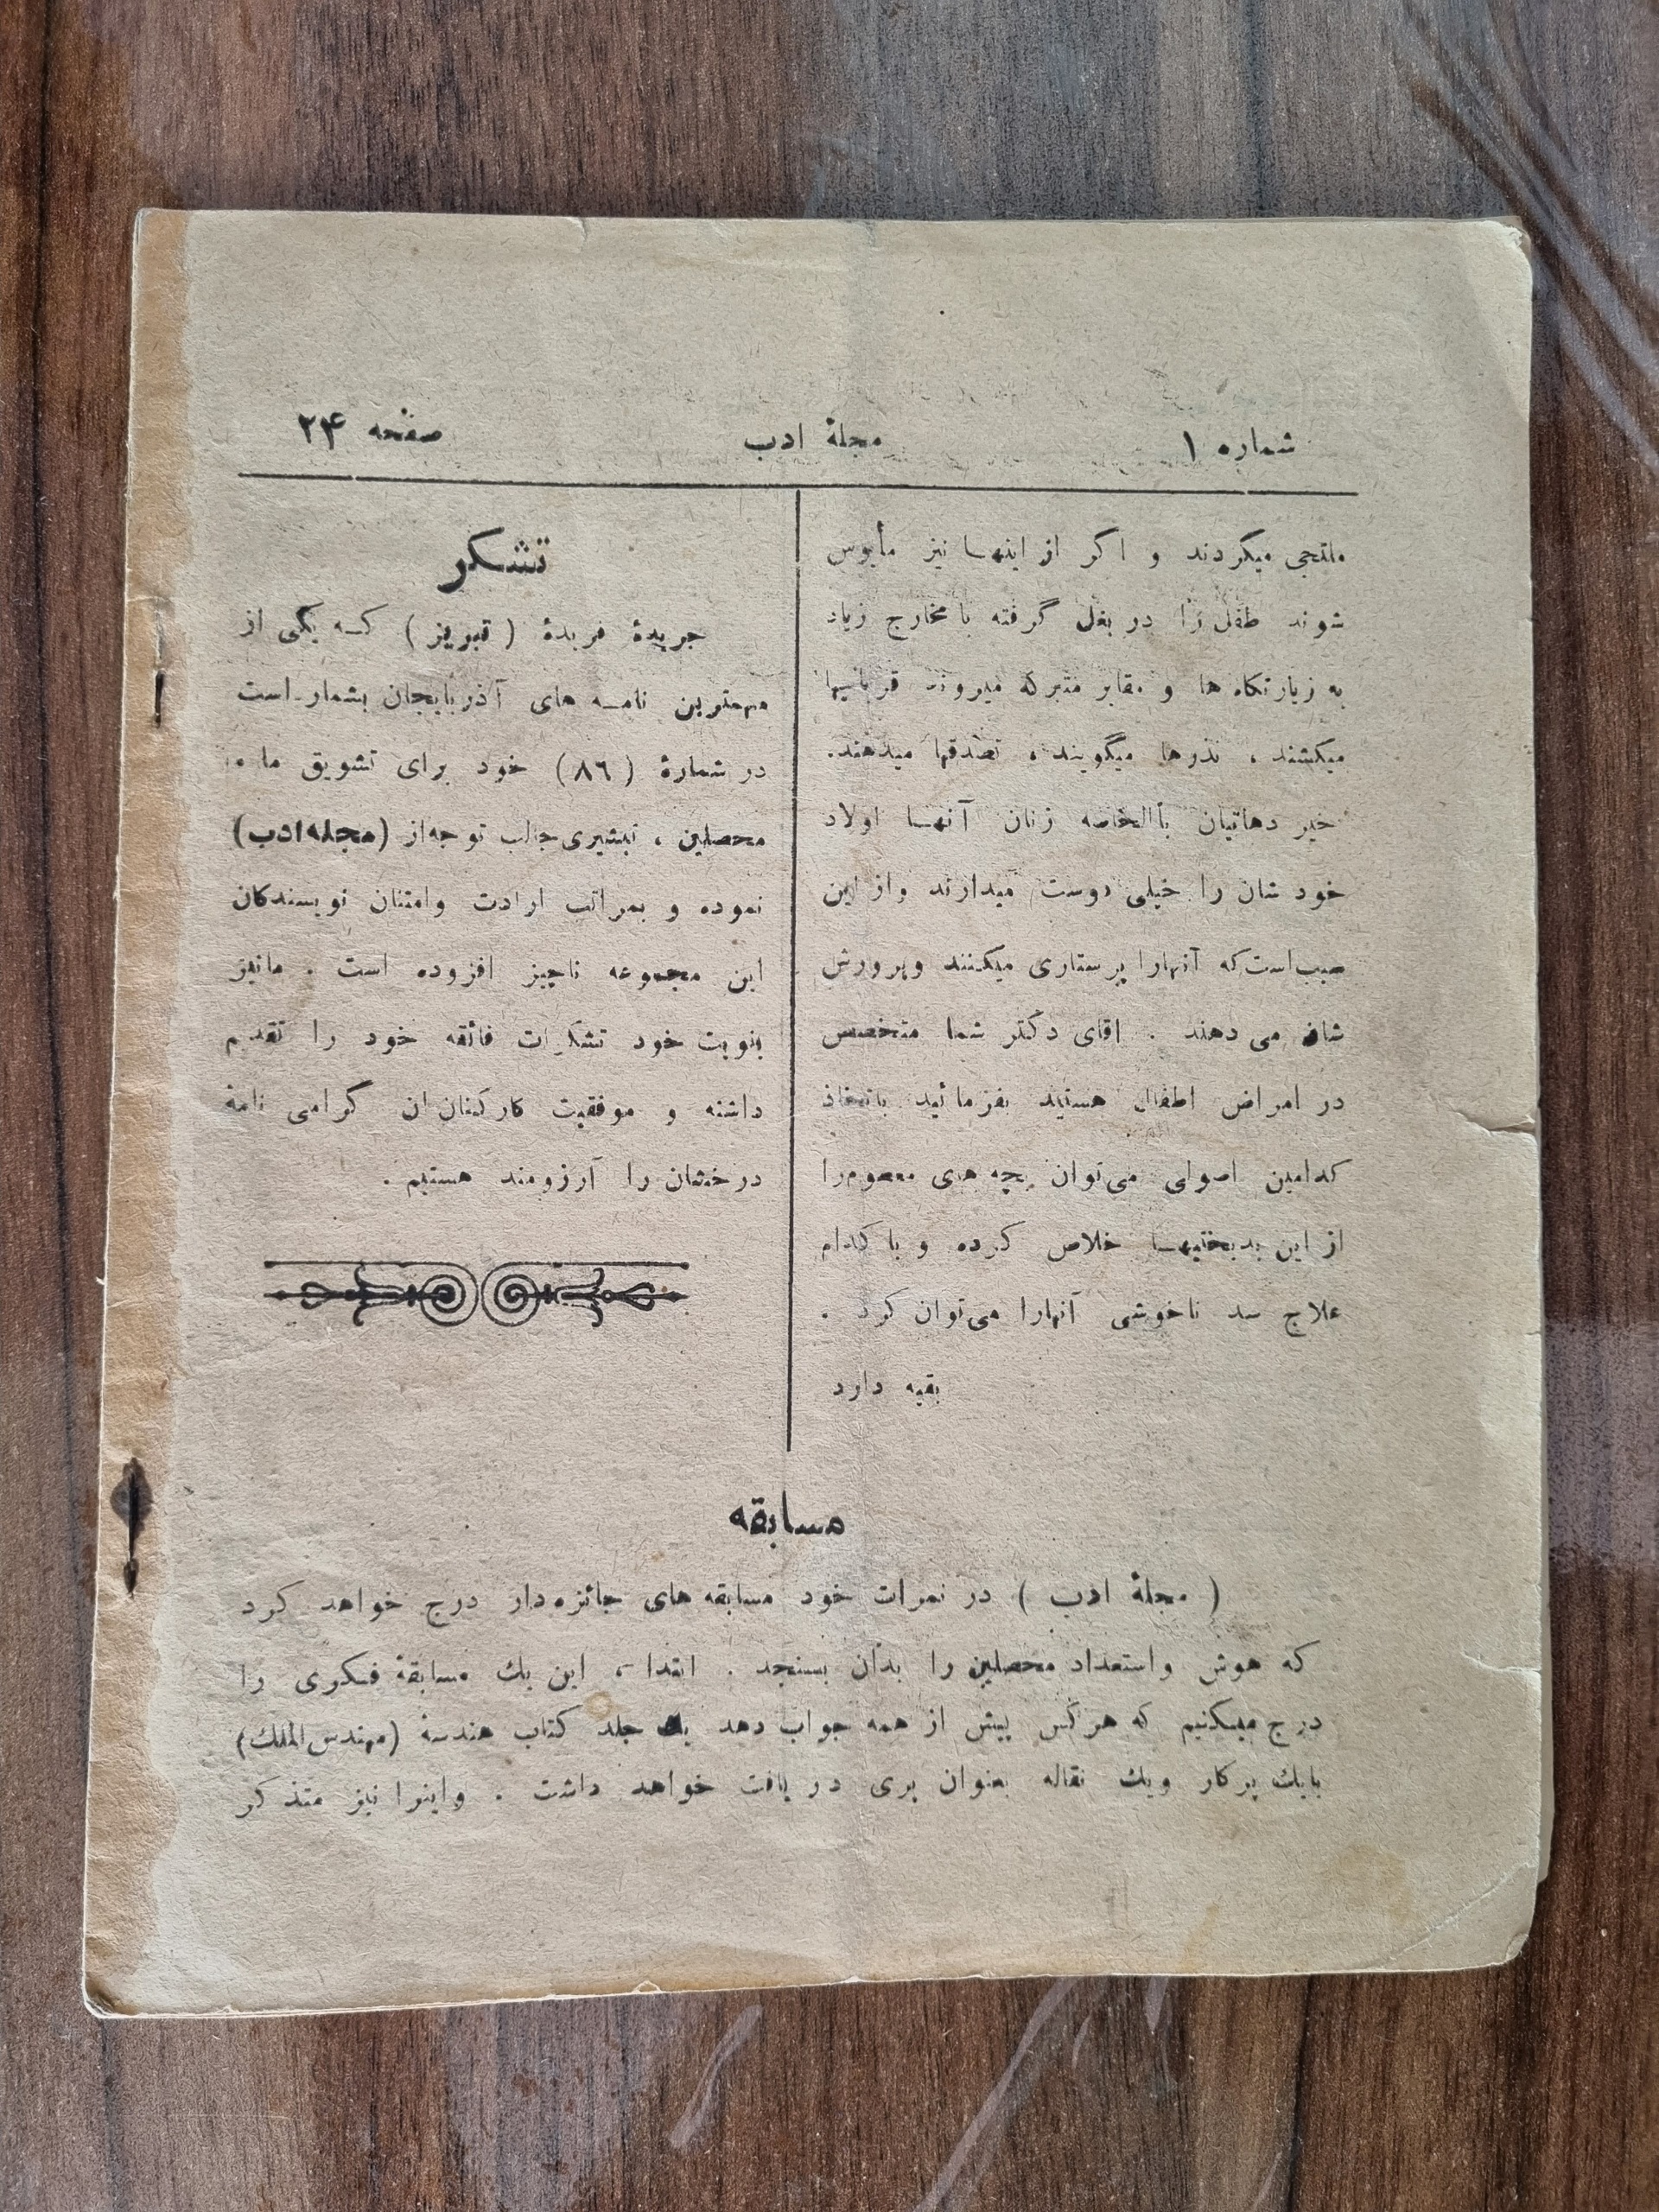 شماره ۱
مجلهٔ ادب
صفحه ۲۴
ملتجی میگردند و اگر از اینهـا نیز مأیوس
شوند طفل را در بغل گرفته با مخارج زیاد
به زیارتگاه ها و مقابر متبرکه میروند قربانیها
میکشند ، نذرها میگویند ، تصدقها میدهند.
خیر دهاتیان باالخاصه زنان آنهـا اولاد
خود شان را خیلی دوست میدارند و از این
سبب است که آنهارا پرستاری میکنند و پرورش
شان می دهند . اقای دکتر شما متخصص
در امراض اطفال هستید بفرمائید باتخاذ
کدامین اصولی می‌توان بچه های معصوم‌را
از این بدبختیهـا خلاص کرده و با کدام
علاج سد ناخوشی آنهارا می‌توان کرد .
بقیه دارد
تشکر
جریدهٔ فریدهٔ ( تبریز ) کـه یکی از
مهمترین نامـه های آذربایجان بشمار است
در شمارهٔ (۸٦) خود برای تشویق ما
محصلین ، تبشیری جالب توجه از (مجله ادب)
نموده و بمراتب ارادت وامتنان نویسندکان
این مجموعه ناچیز افزوده است . مانیز
بنوبت خود تشکرات فائقه خود را تقدیم
داشته و موفقیت کارکنان ان گرامی نامهٔ
درخشان را آرزومند هستیم .
مسابقه
( مجلهٔ ادب ) در نمرات خود مسابقه های جائزه‌دار درج خواهد کرد
که هوش واستعداد محصلین را بدان بسنجد . ابتداء ، این یك مسابقهٔ فـکری را
درج میـکنیم که هرکس پیش از همه جواب دهد یك جلد کتاب هندسهٔ (مهندس الملك)
بایك پرکار ویك نقاله بعنوان پری دریافت خواهد داشت . واینرا نیز متذکر